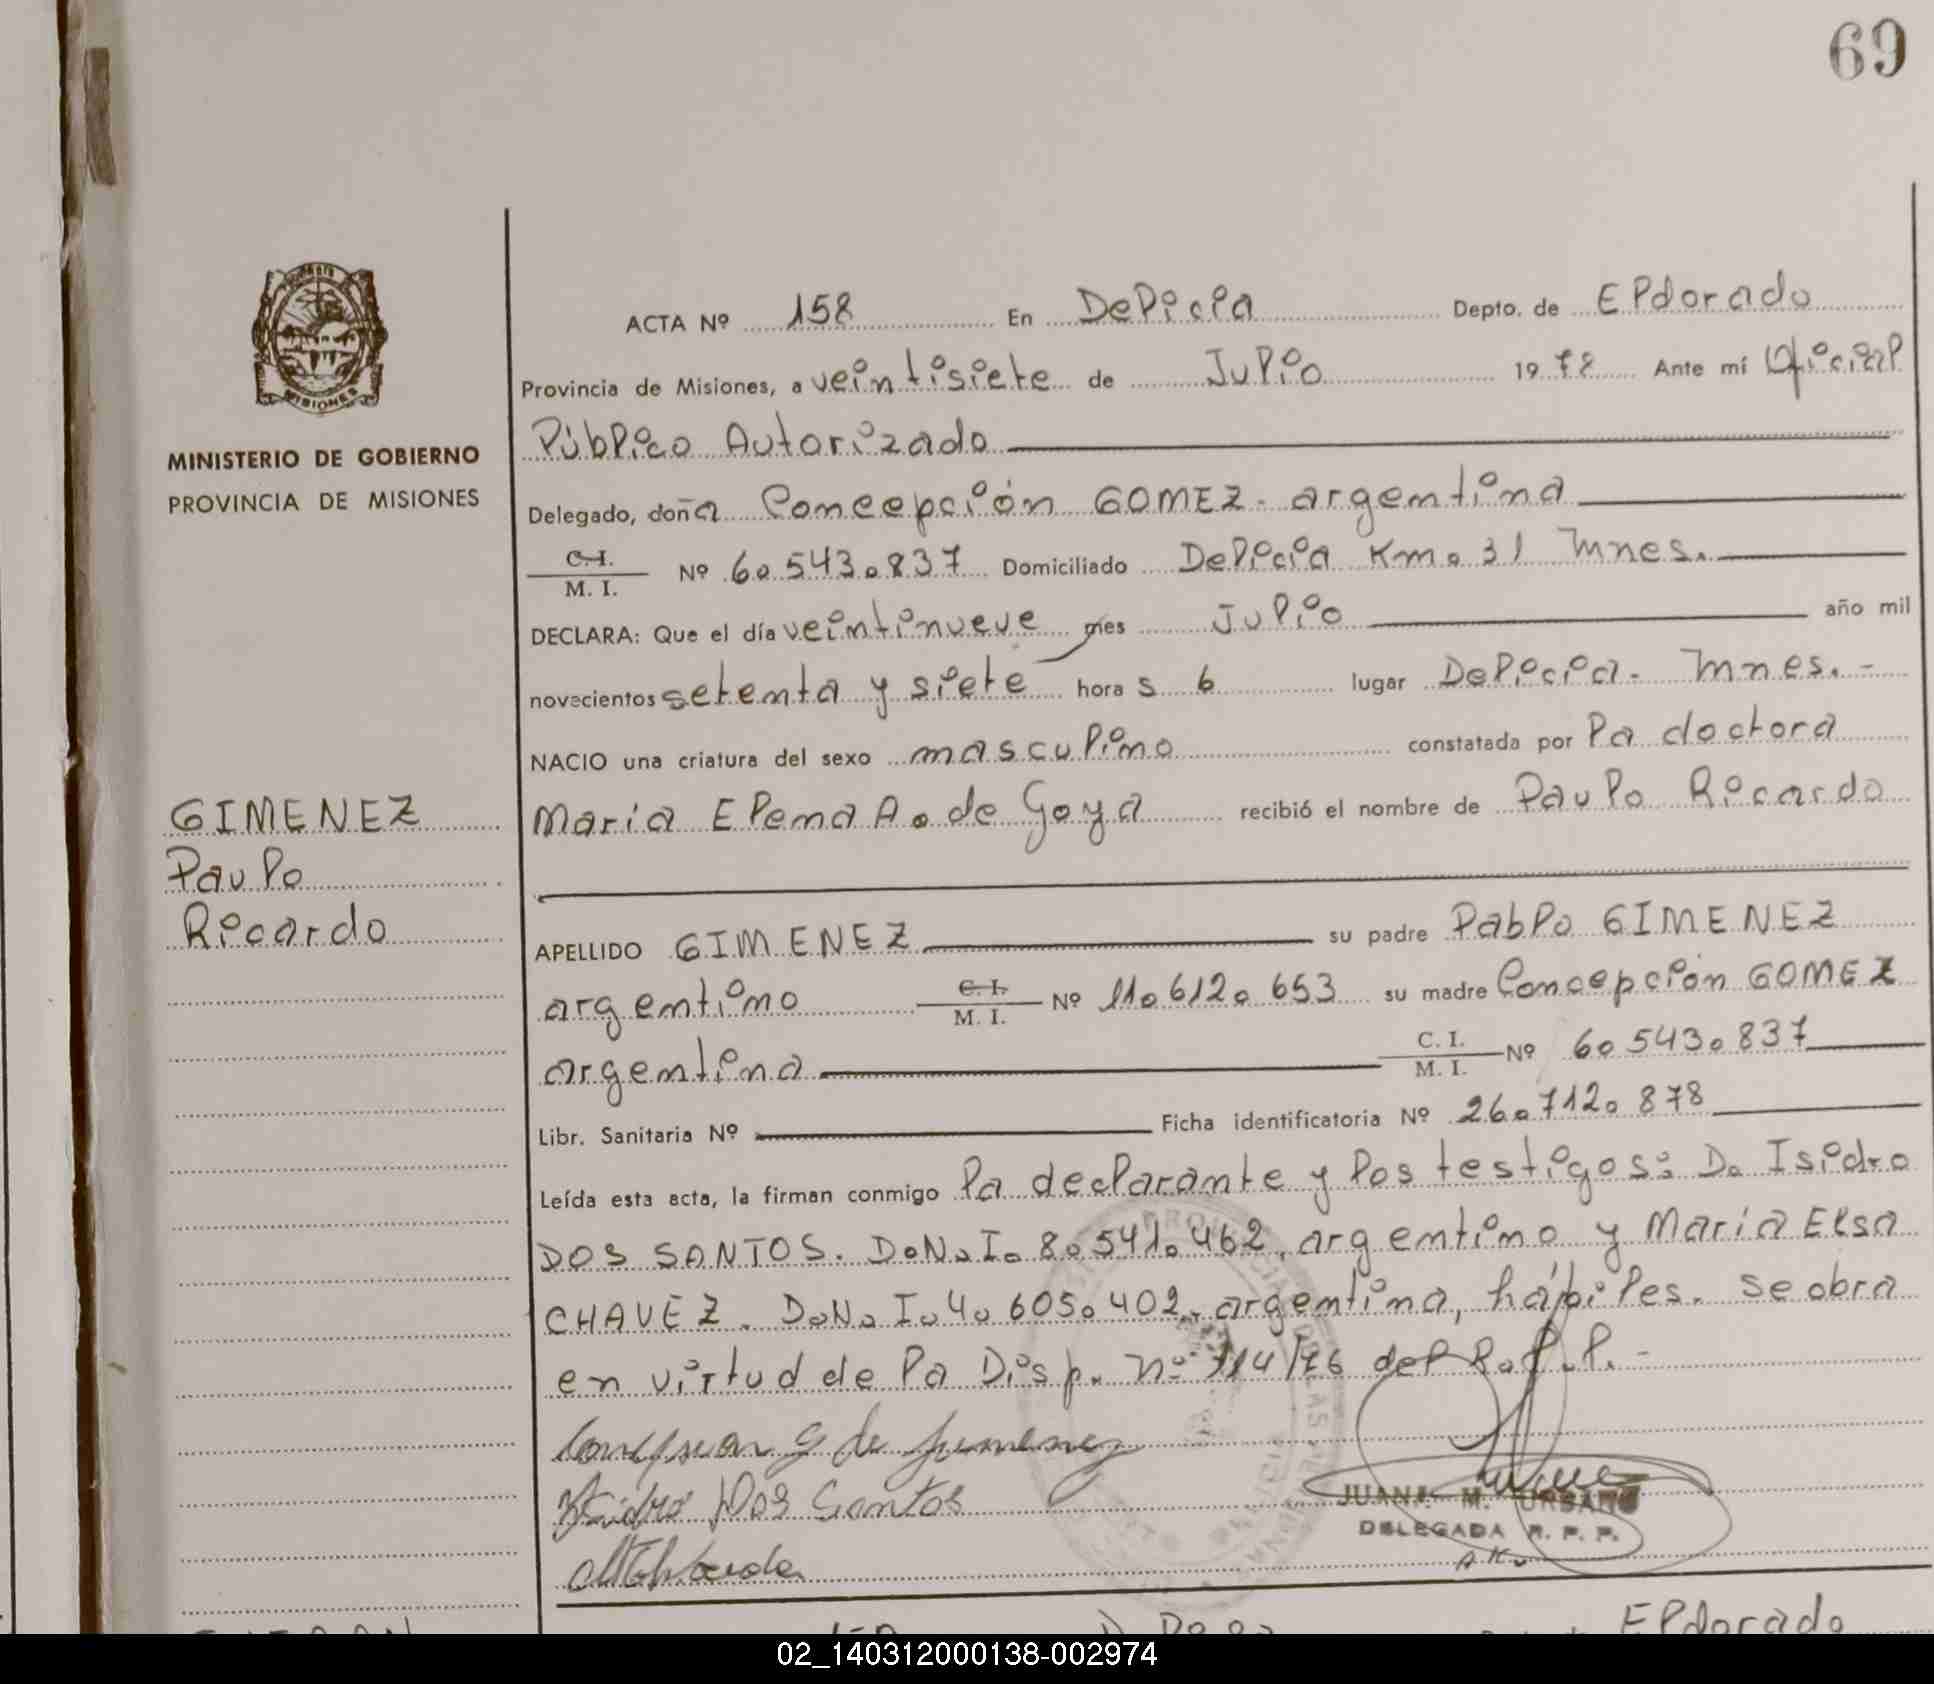 69
ACTA Nº 158 En Delicia Depto. de Eldorado
Provincia de Misiones, a veintisiete de Julio 1978 Ante mí Oficial
Público Autorizado
MINISTERIO DE GOBIERNO
PROVINCIA DE MISIONES
Delegado, doña Concepción GOMEZ - argentina
C.I. / M. I. Nº 6.543.837 Domiciliado Delicia Km. 31 Mnes.
DECLARA: Que el día veintinueve mes Julio año mil
novecientos setenta y siete hora s 6 lugar Delicia - Mnes. -
NACIO una criatura del sexo masculino constatada por la doctora
Maria Elena A. de Goya recibió el nombre de Paulo Ricardo
GIMENEZ
Paulo
Ricardo
APELLIDO GIMENEZ su padre Pablo GIMENEZ
argentino C. I. / M. I. Nº 11.612.653 su madre Concepción GOMEZ
argentina C. I. / M. I. Nº 6.543.837
Libr. Sanitaria Nº Ficha identificatoria Nº 26.712.878
Leída esta acta, la firman conmigo la declarante y los testigos: D. Isidro
DOS SANTOS. D.N.I. 8.541.462, argentino y Maria Elsa
CHAVEZ. D.N.I. 4.605.402, argentina, hábiles. Se obra
en virtud de la Disp. nº 114/76 del R.P.P. -
Concepsion G de Jimenez
Isidro Dos Santos
JUANA M. URBANO
DELEGADA R. P. P.
A.K.
Eldorado
02_140312000138-002974